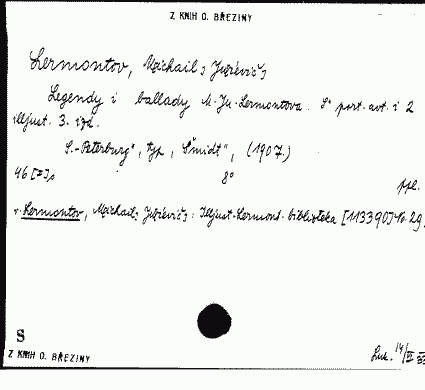 Z KNIH O. BŘEZINY
Lermontov, Michail Jur'evič
Legendy i ballady M. Ju. Lermontova. S portr. avt. i 2
illjust. 3. izd.
S.-Peterburg", typ. "Šmidt", (1907.)
46 [II] s. 8°
ppl.
v. Lermontov, Michail Jur'evič: Illjust. Lermont. biblioteka [113390] No. 29
S
Z KNIH O. BŘEZINY
Luk. 14/